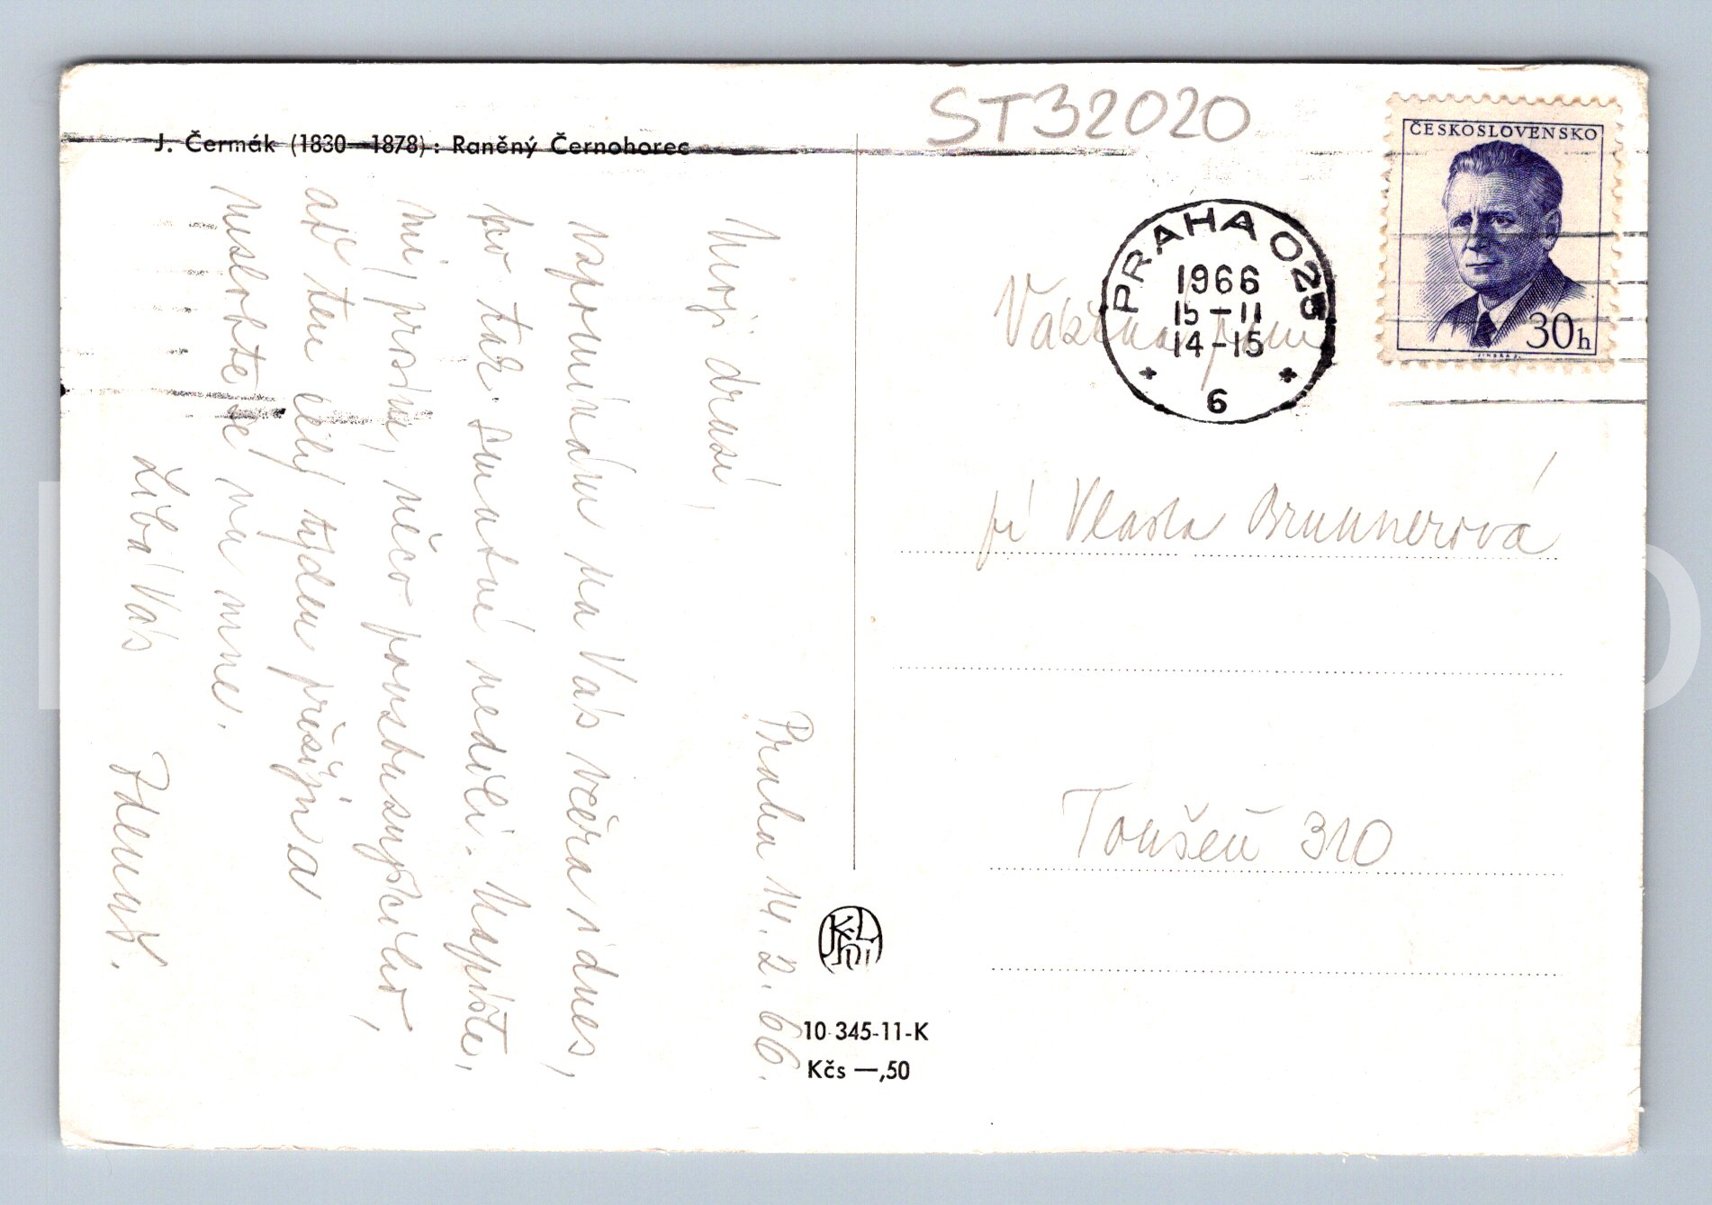 J. Čermák (1830—1878): Raněný Černohorec
Praha 14. 2. 66.
Moji drazí,
vzpomínám na Vás včera i dnes,
po tak smutné neděli. Napište,
mi, prosím, něco povzbuzujícího,
ať ten celý týden přežiji a
nezlobte se na mne.
Líbá Vás
Zdeněk.
10 345-11-K
Kčs —,50
ST32020
ČESKOSLOVENSKO
30h
PRAHA 025
1966
15-11
14-15
6
Vážená paní
pí Vlasta Brunnerová
Toušeň 310